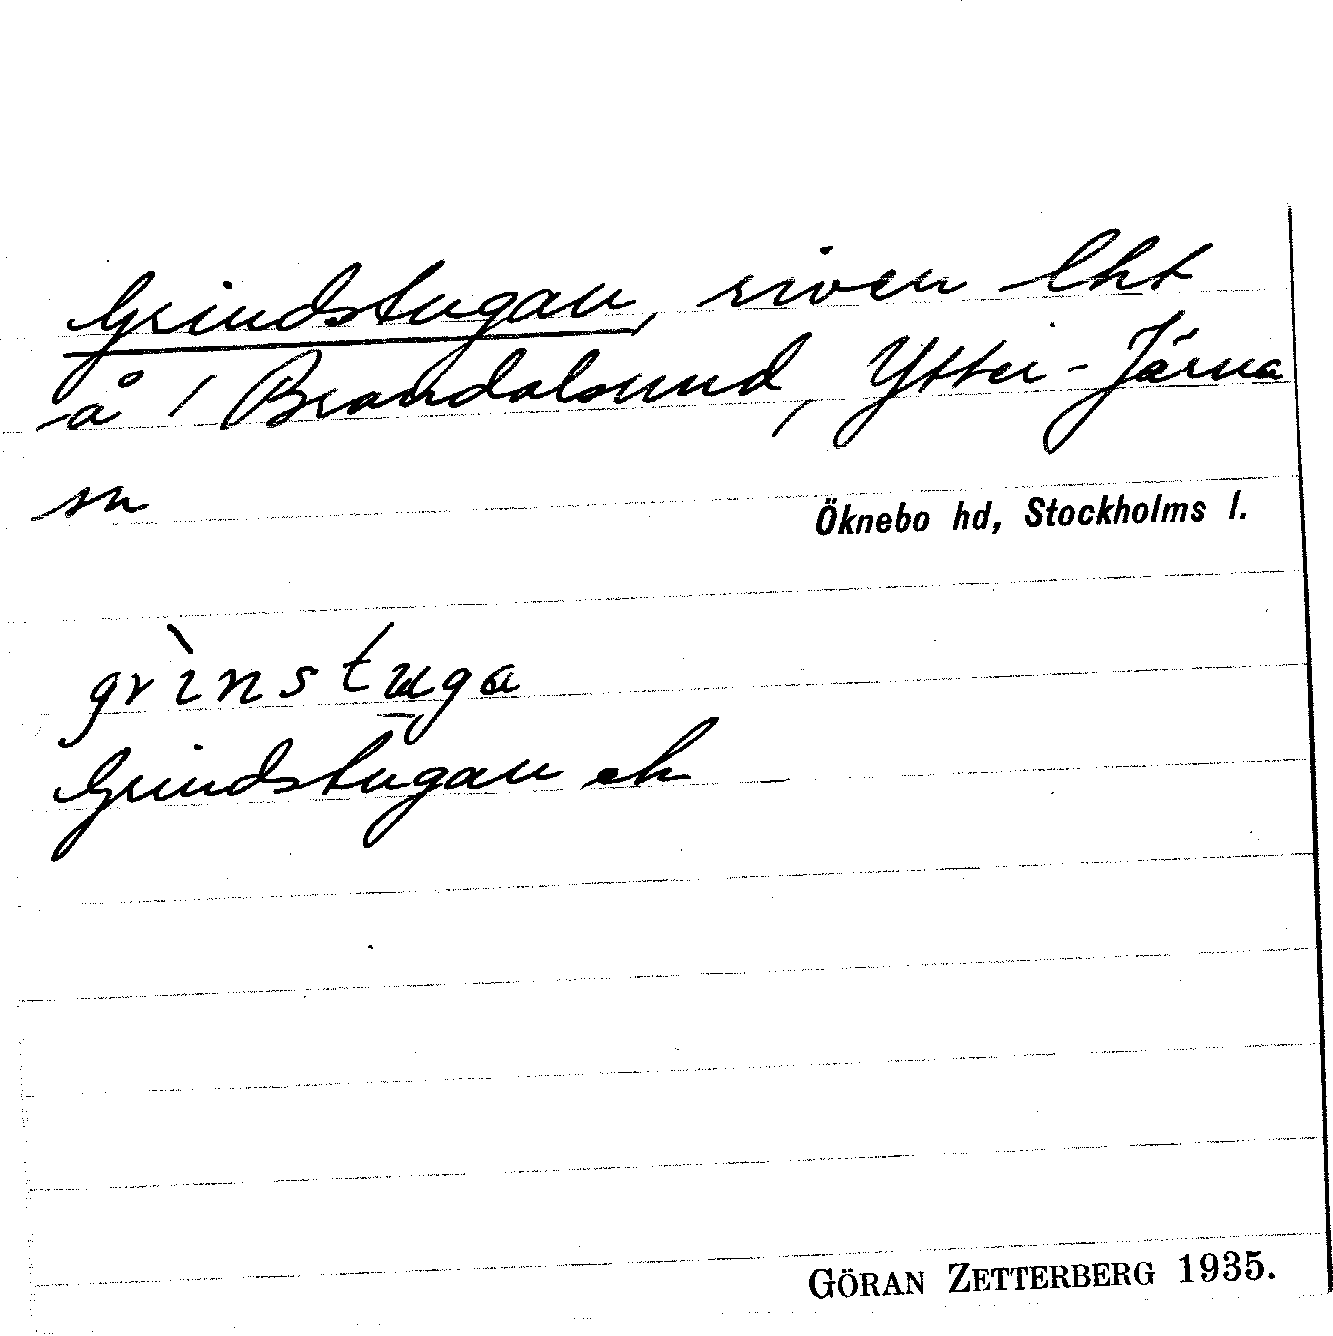 Grindstugan, riven lht
å 1 Brandalsund, Ytter-Järna
sn
Öknebo hd, Stockholms l.
grìnstuga
Grindstugan ek
GÖRAN ZETTERBERG 1935.